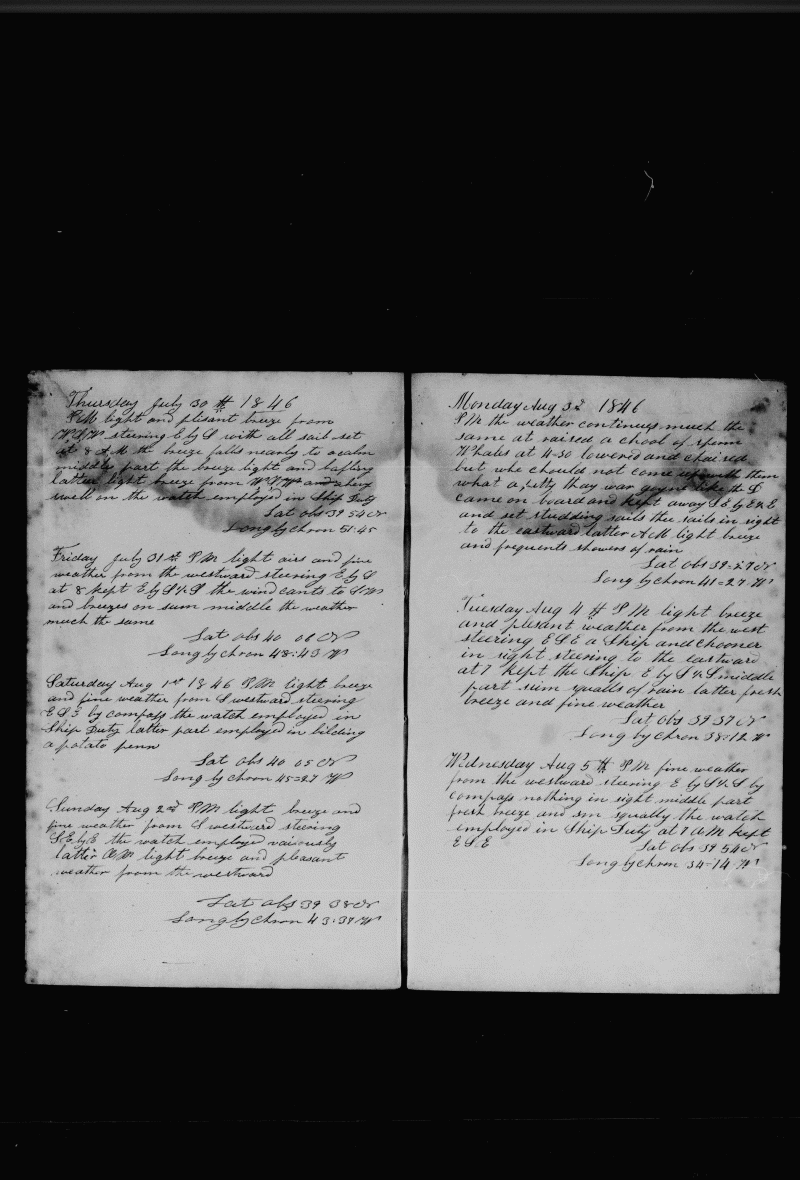 Thursday July 30th 1846
PM light and plisant breeze from
WSW steering E by S with all sail set
at 8 AM the breeze falls nearly to a calm
middle part the breeze light and bafling
latter light breeze from WSW and a hevy
swell on the watch employed in Ship Duty
Lat obs 39 54 N
Long by chron 51:45
Friday July 31st PM light airs and fine
weather from the westward steering E by S
at 8 kept E by S 1/2 S the wind cants to SW
and breezes on sum middle the weather
much the same
Lat obs 40 06 N
Long by chron 48:43 W
Saturday Aug 1st 1846 PM light breeze
and fine weather from S westward steering
ESE by compass the watch employed in
Ship Duty latter part employed in bilding
a potato penn
Lat obs 40 05 N
Long by chron 45=27 W
Sunday Aug 2nd PM light breeze and
fine weather from S westward steering
SE by E the watch employed vaiously
latter AM light breeze and pleasant
weather from the westward
Lat obs 39 38 N
Long by chron 43:39 W
Monday Aug 3d 1846
PM the weather continues much the
same at raised a chool of sperm
Whales at 4-30 lowered and chaised
but whe chould not come up with them
what a pitty thay war goying like th D
came on board and kept away SE by E 1/2 E
and set studding sails thee sails in sight
to the eastward latter AM light breeze
and frequents showers of rain
Lat obs 39=27 N
Long by chron 41=27 W
Tuesday Aug 4th PM light breeze
and plesant weather from the west
steering ESE a Ship and chooner
in sight steering to the eastward
at 7 kept the Ship E by S 1/2 S middle
part sum squalls of rain latter fresh
breeze and fine weather
Lat obs 39 37 N
Long by chron 38=12 W
Wednesday Aug 5th PM fine weather
from the westward steering E by S 1/2 S by
compass nothing in sight middle part
fresh breeze and sm squally the watch
employed in Ship Duty at 7 AM kept
ESE
Lat obs 39 54 N
Long by chron 34=14 W